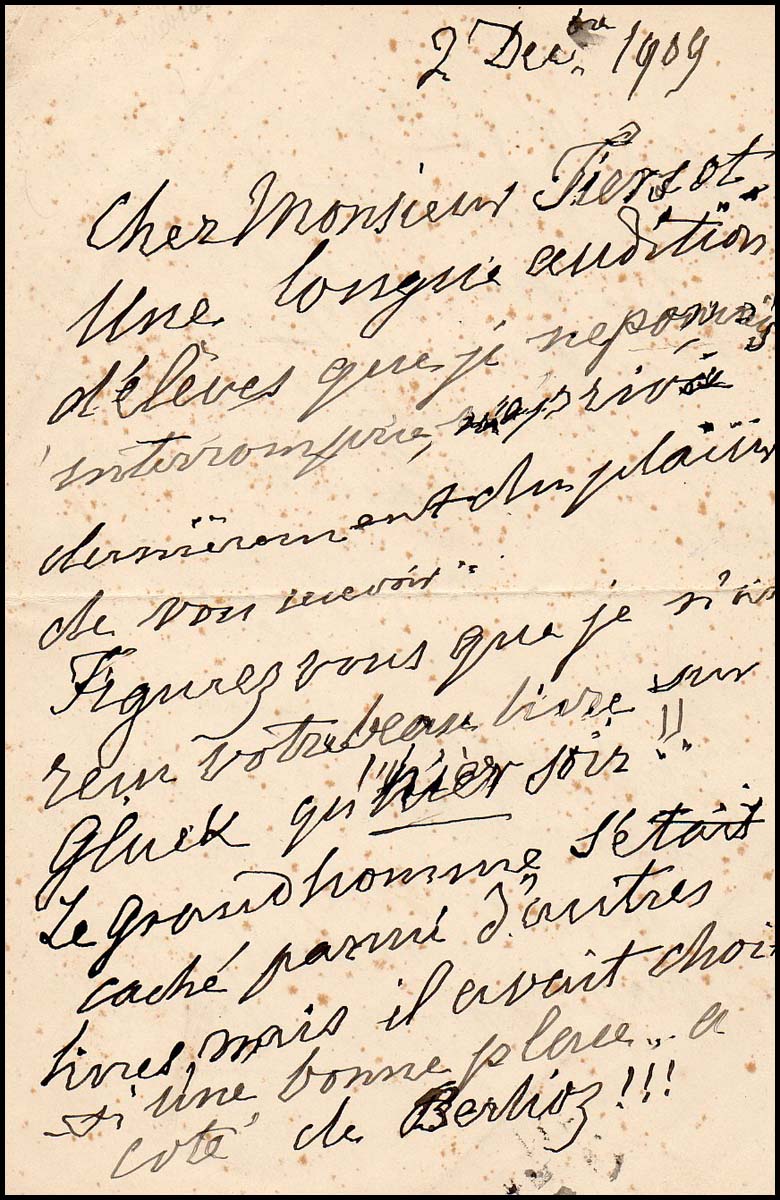 2 Dec.bre 1909
Cher Monsieur Tiersot.
Une longue audition
d'élèves que je ne pouvais
interrompre, m'a privée
dernièrement du plaisir
de vous recevoir..
Figurez vous que je n'ai
reçu votre beau livre sur
Glück qu'hier soir!!
Le grand homme s'était
caché parmi d'autres
livres, mais il avait choi-
si une bonne place... a
coté de Berlioz!!!